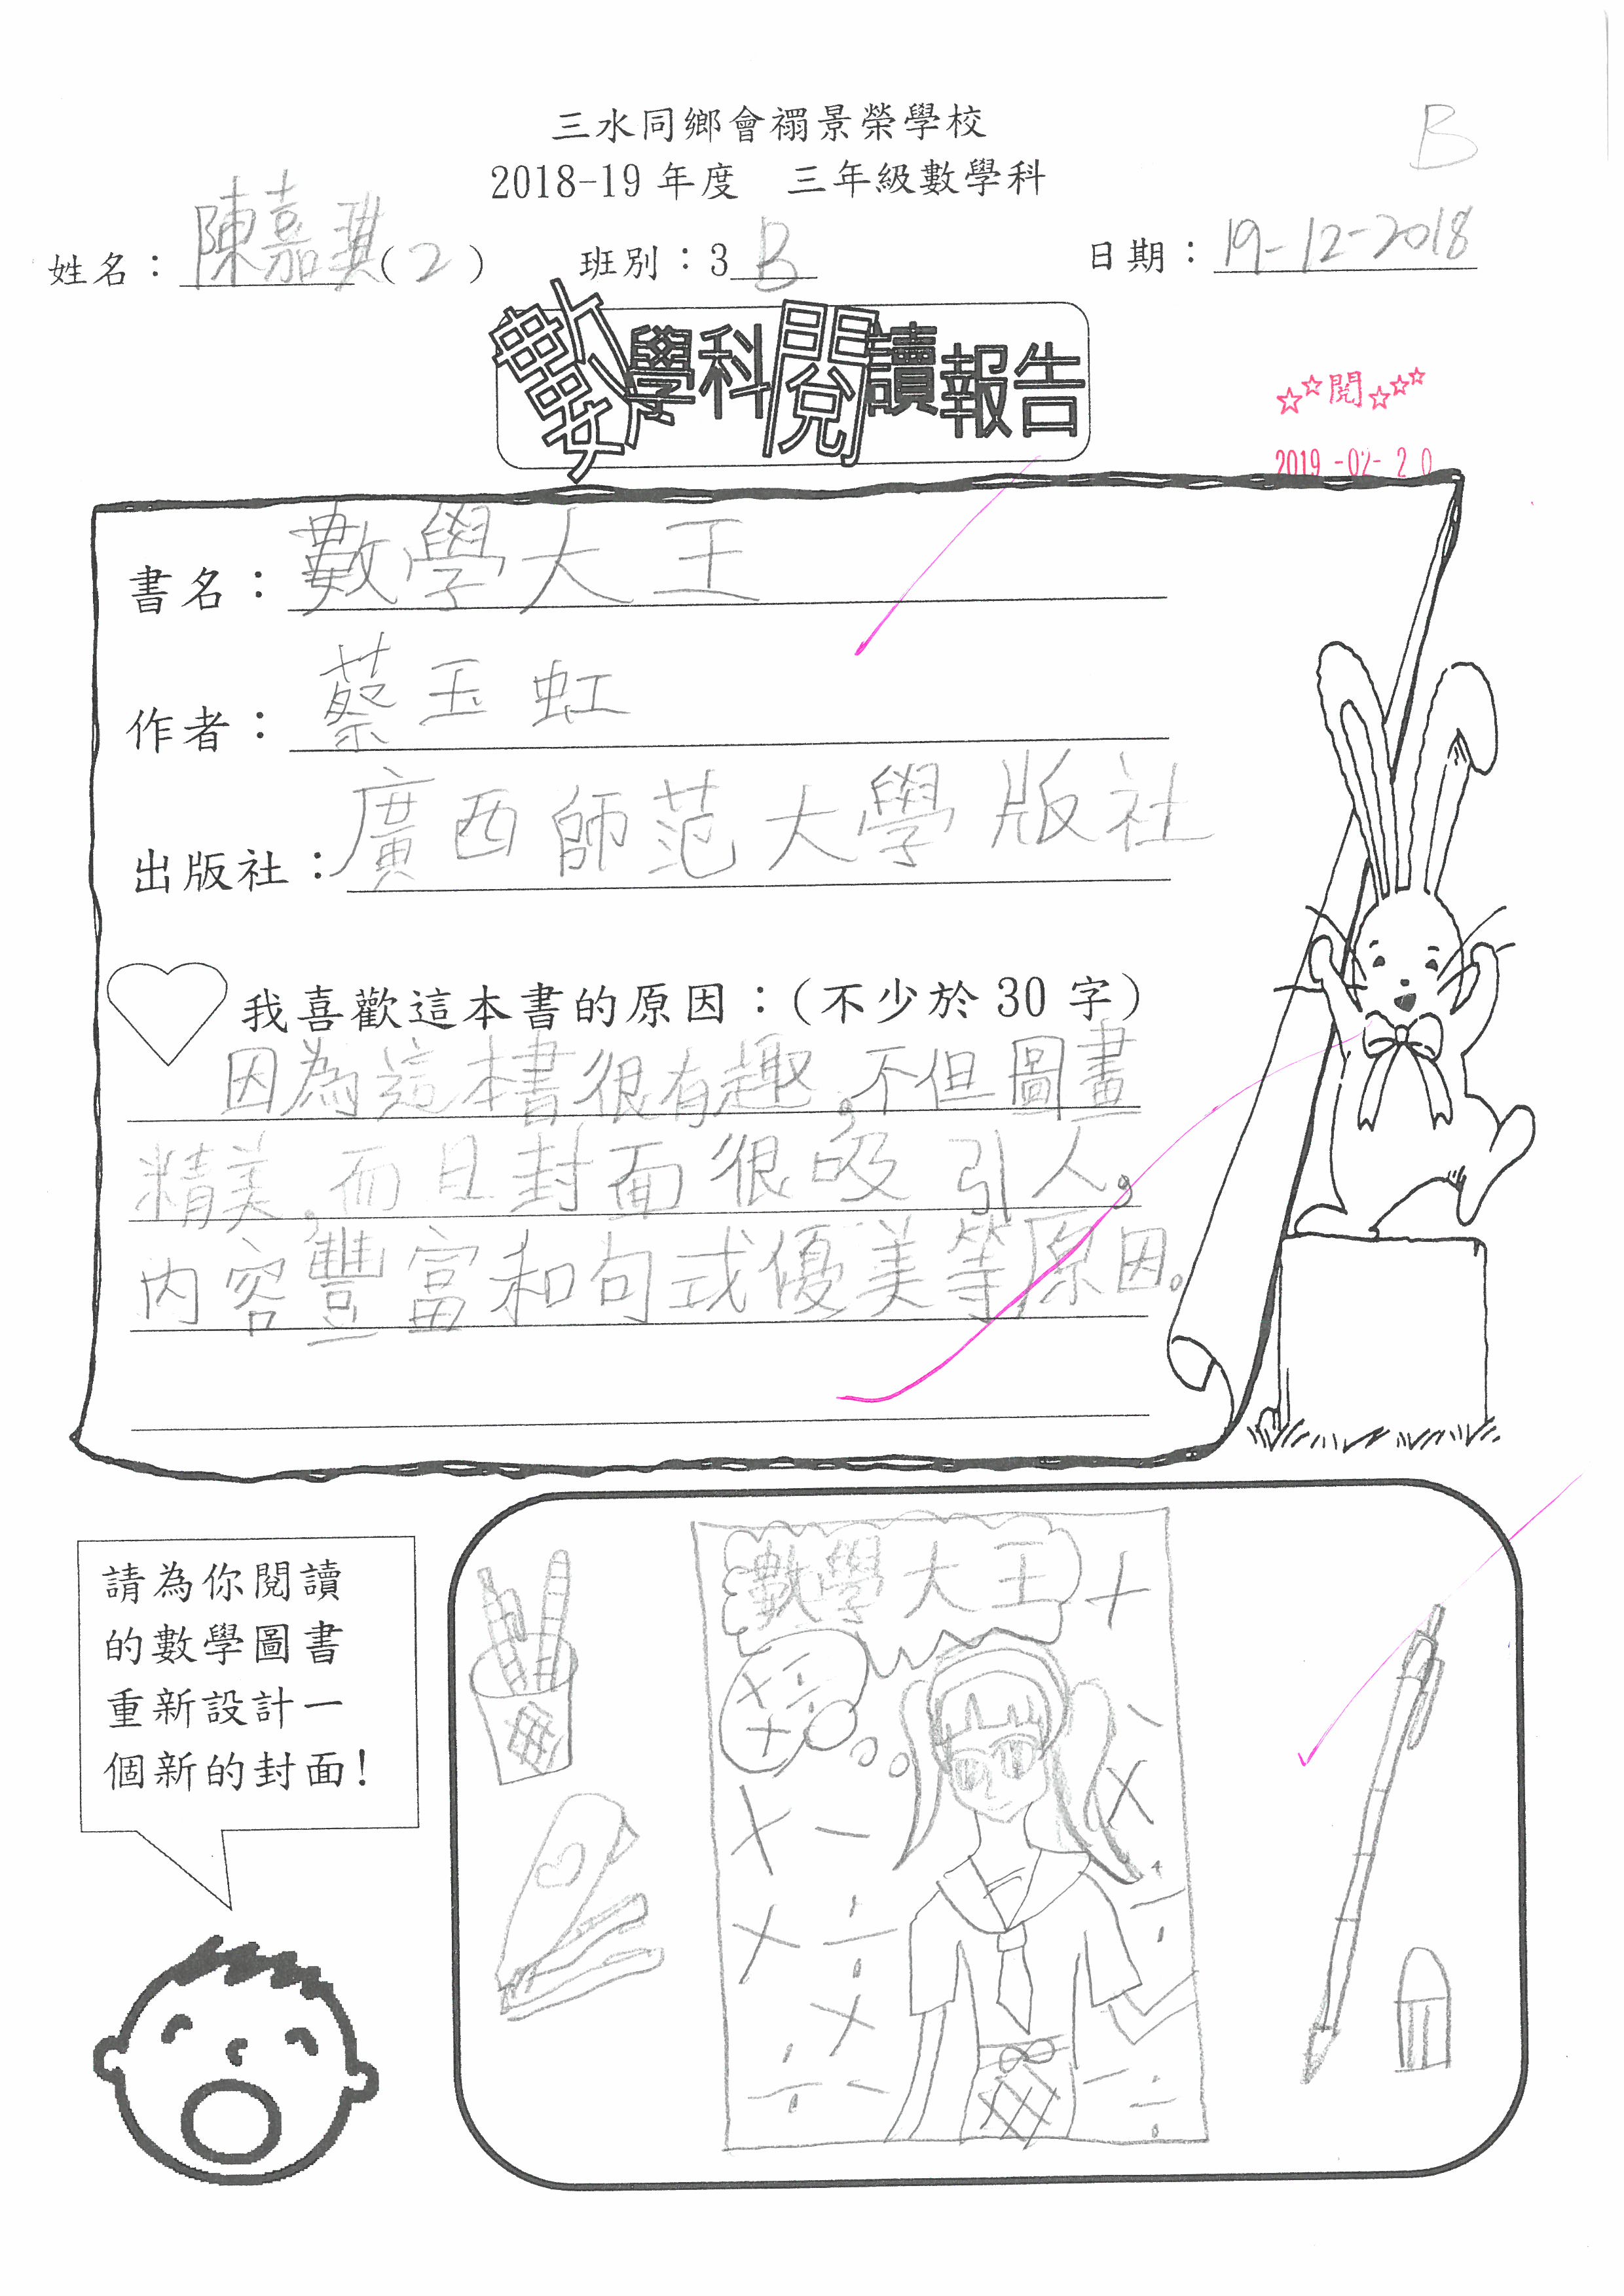 三水同鄉會禤景榮學校
B
2018-19 年度 三年級數學科
姓名：陳嘉琪(2) 班別：3B 日期：19-12-2018
數學科閱讀報告
☆☆閱☆☆☆
2019-02-20
書名：數學大王
作者：蔡玉虹
出版社：廣西師范大學版社
我喜歡這本書的原因：(不少於 30 字)
因為這本書很有趣，不但圖畫
精美，而且封面很吸引人，
內容豐富和句式優美等原因。
請為你閱讀
的數學圖書
重新設計一
個新的封面!
數學大王
+
× ÷
+
-
×
× -
÷
× ÷
×
÷ - - ÷